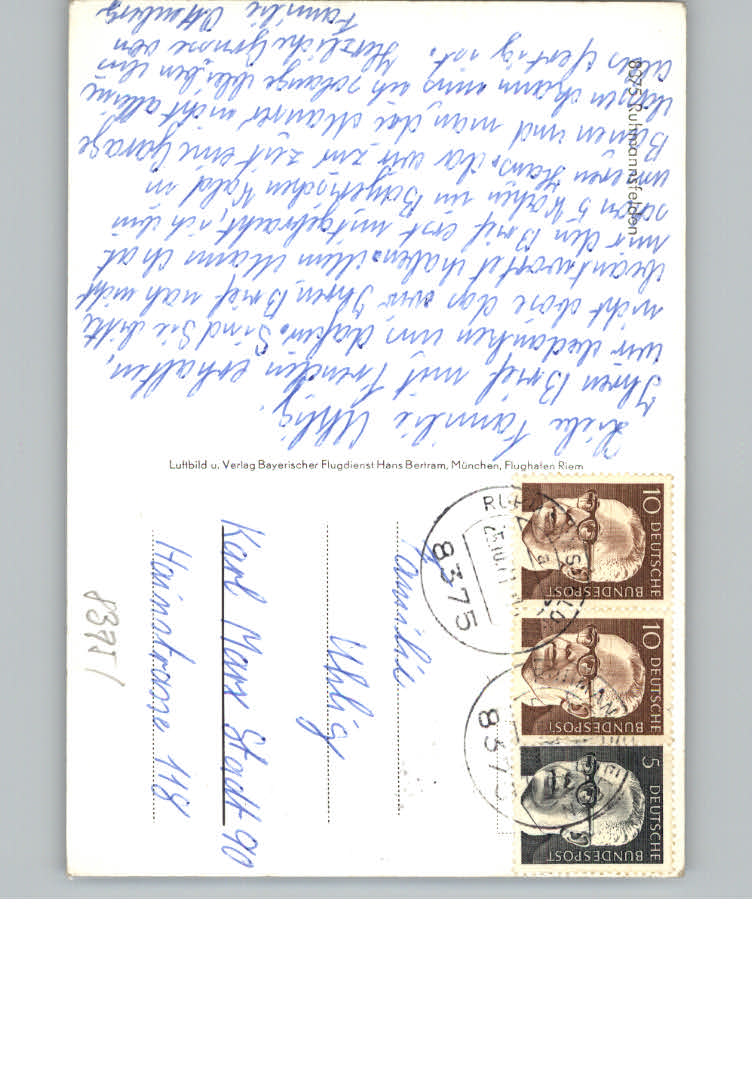 8375 Ruhmannsfelden
Liebe Familie Uhlig.
Ihren Brief mit Freuden erhalten,
wir bedanken uns dafür. Sind Sie bitte
nicht böse das wir Ihren Brief noch nicht
beantwortet haben. Mein Mann hat
mir den Brief erst mitgebracht, ich bin
schon 5 Wochen im Bayerischen Wald in
unseren Haus. da wir zur zeit eine Garage
Bauen und man die Maurer nicht alleine
lassen kann muss ich solange bleiben bis
alles fertig ist. Herzliche Grüsse von
Familie Ottenberg
Luftbild u. Verlag Bayerischer Flugdienst Hans Bertram, München, Flughafen Riem
Familie
Uhlig
Karl Marx Stadt 90
Hainstrasse 118
8375/
10 DEUTSCHE
BUNDESPOST
10 DEUTSCHE
BUNDESPOST
5 DEUTSCHE
BUNDESPOST
8375